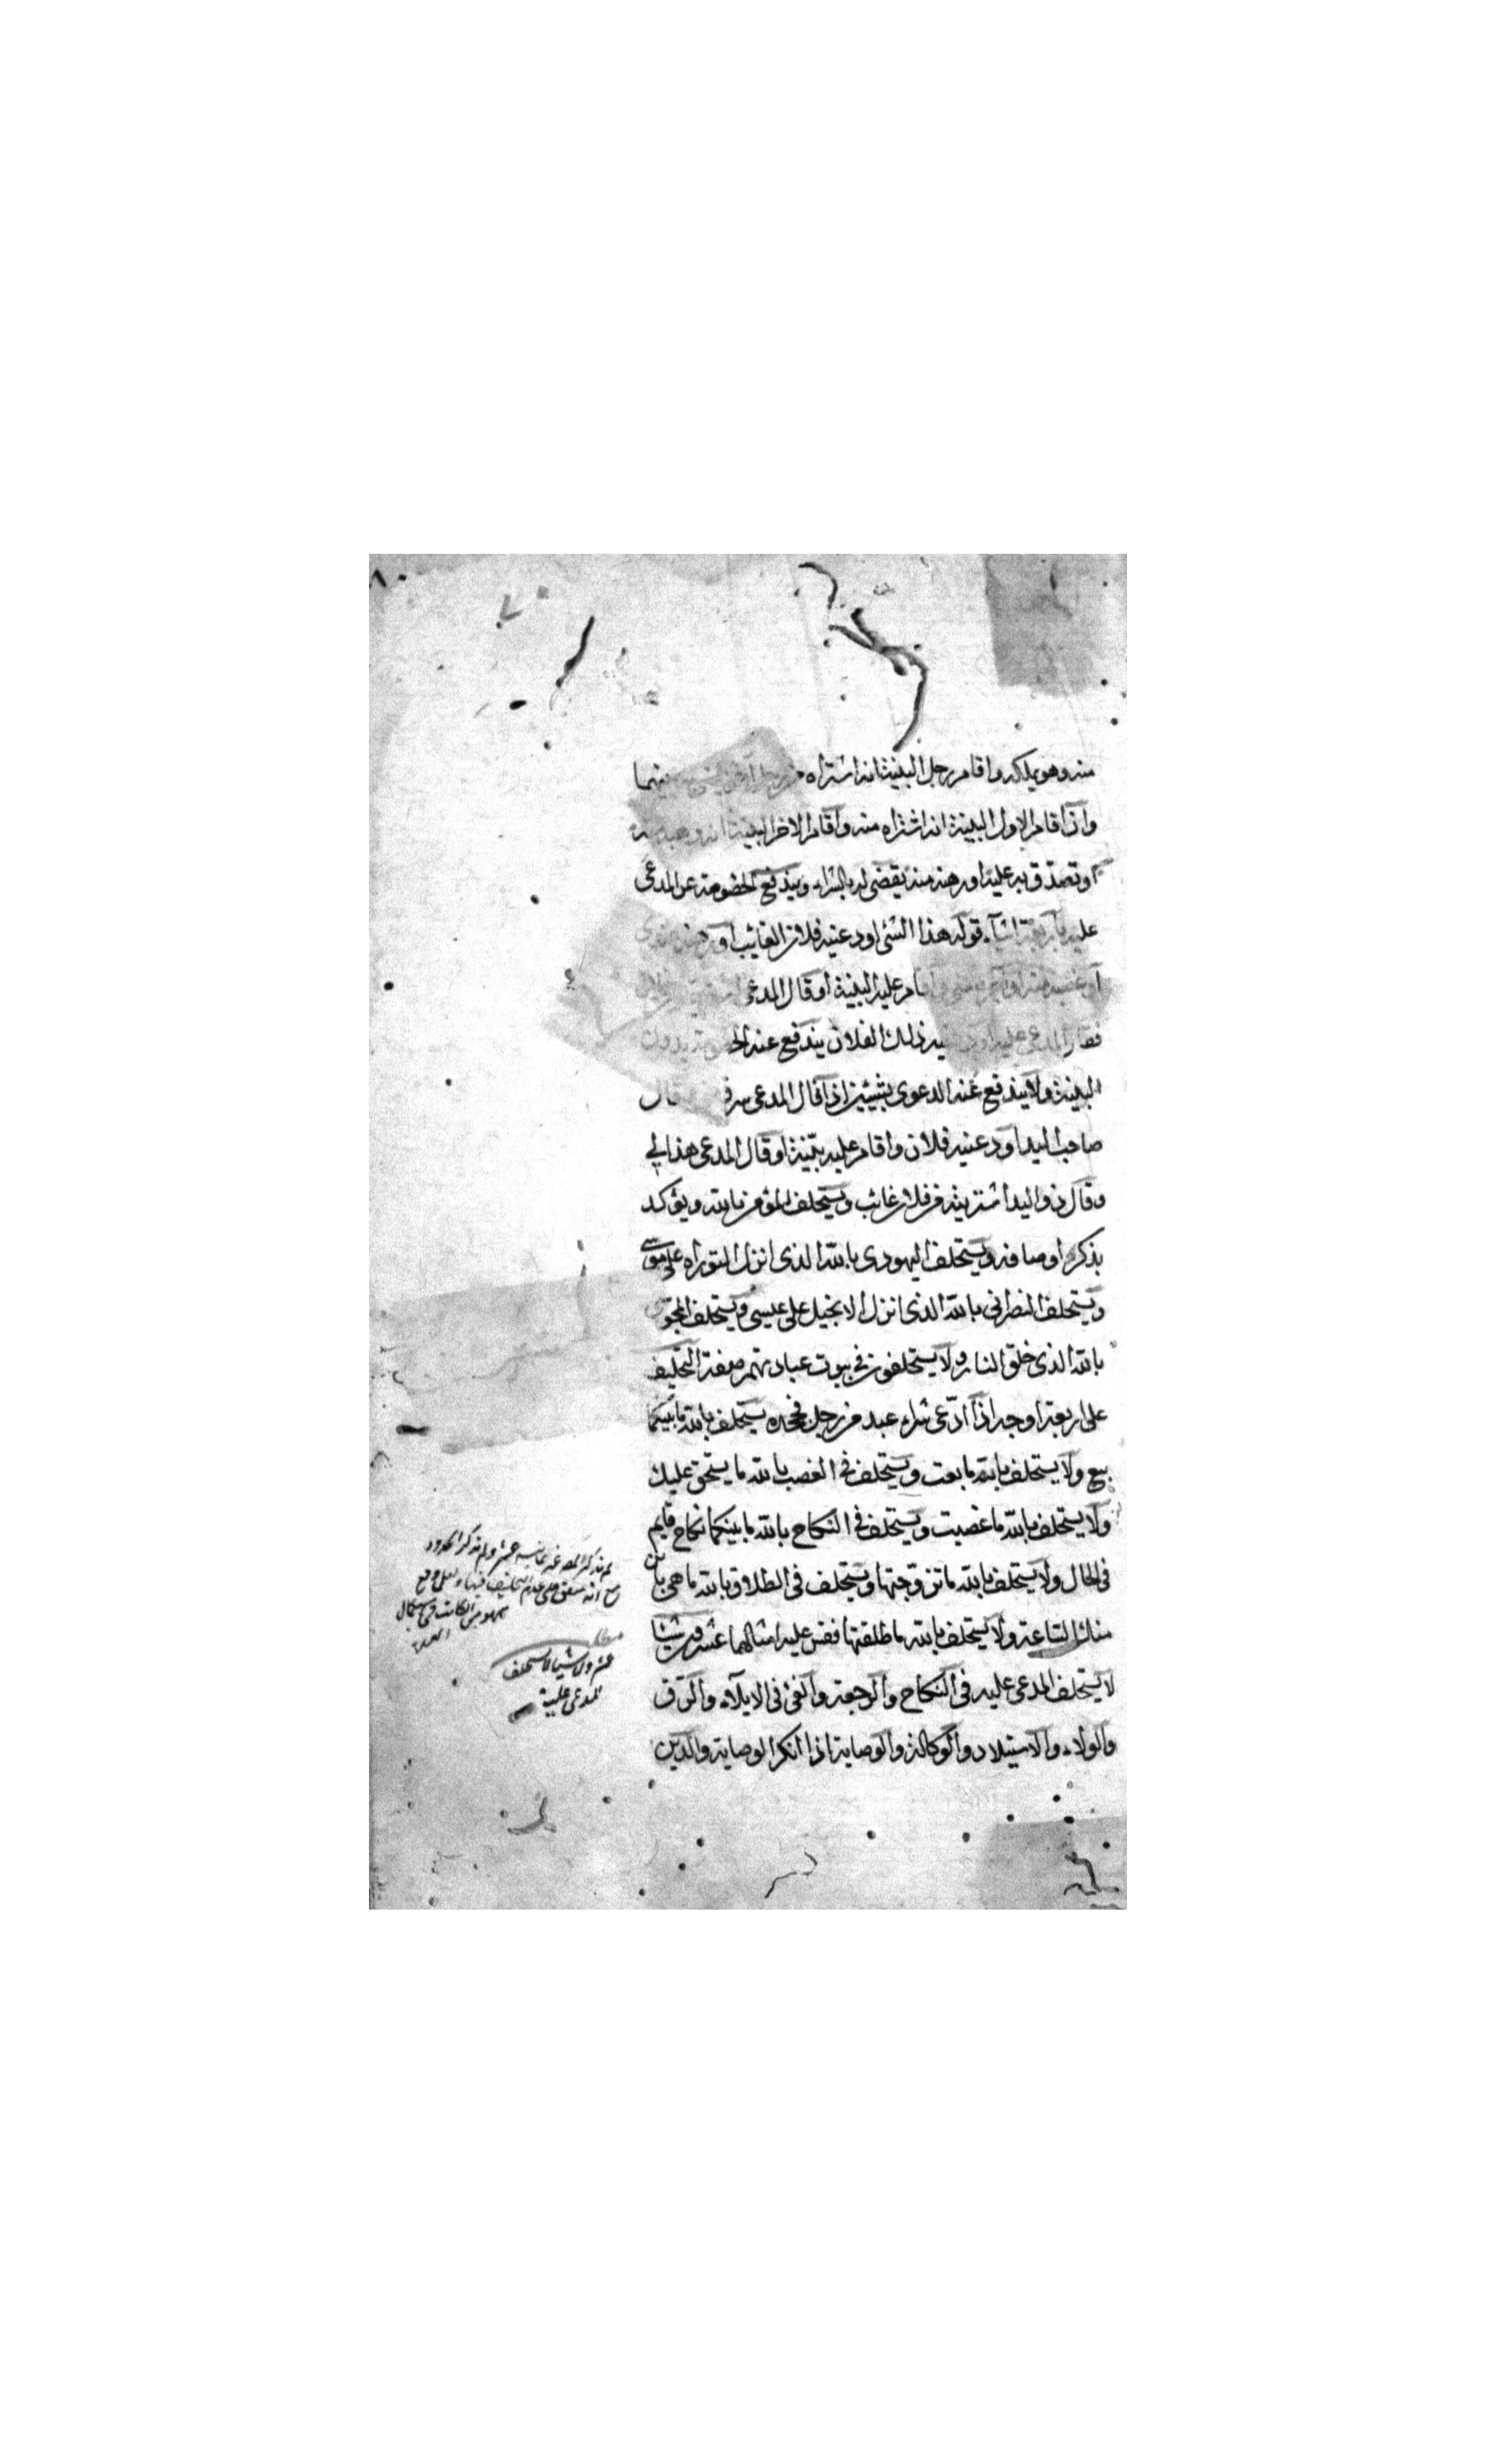 منه وهو يملكه واقام رجل البينة انه اشتراه من رجل آخر بينهما
واذا اقام الاول البينة انه اشتراه منه واقام الاخر البينة انه وهبه منه
او تصدق به عليه او رهنه منه يقضى له بالشراء ويندفع الخصومة عن المدعى
عليه باربعة اشياء قوله هذا الشئ اودعنيه فلان الغائب او
او غصبته منه او اقام عليه البينة او قال المدعى
فقال المدعى عليه ذلك الفلان يندفع عنه الخصومة بدون
البينة ولا يندفع عنه الدعوى بشيئين اذا قال المدعى سرق وقال
صاحب اليد اودعنيه فلان واقام عليه بينة او قال المدعى هذا لي
وقال ذو اليد اشتريته من فلان غائب ويستحلف المؤمن بالله ويؤكد
بذكر اوصافه ويستحلف اليهودى بالله الذى انزل التوراه على موسى
ويستحلف النصرانى بالله الذى انزل الانجيل على عيسى ويستحلف المجوسى
بالله الذى خلق النار ولا يستحلفون فى بيوت عبادتهم صفة التحليف
على اربعة اوجه اذا ادّعى شراء عبد من رجل فجحده يستحلف بالله ما بينكما
بيع ولا يستحلف بالله ما بعت ويستحلف فى الغصب بالله ما يستحق عليك
ولا يستحلف بالله ما غصبت ويستحلف فى النكاح بالله ما بينكما نكاح قايم
فى الحال ولا يستحلف بالله ما تزوجتها ويستحلف فى الطلاق بالله ما هى باين
منك الساعة ولا يستحلف بالله ما طلقتها فقس عليه امثالهما عشرون شيئا
لا يستحلف المدعى عليه فى النكاح والرجعة والفئ فى الايلاء والرق
والولاء والاستيلاد والوكالة والوصاية اذا انكر الوصاية والدين
لم يذكر المصنف ثمانية عشر ولم يذكر الحدود
مع انه متفق على عدم التحليف فيها ولعل وقع
سهو من الكاتب فى
مطلب
عشرون شيئا لا يستحلف
المدعى عليه